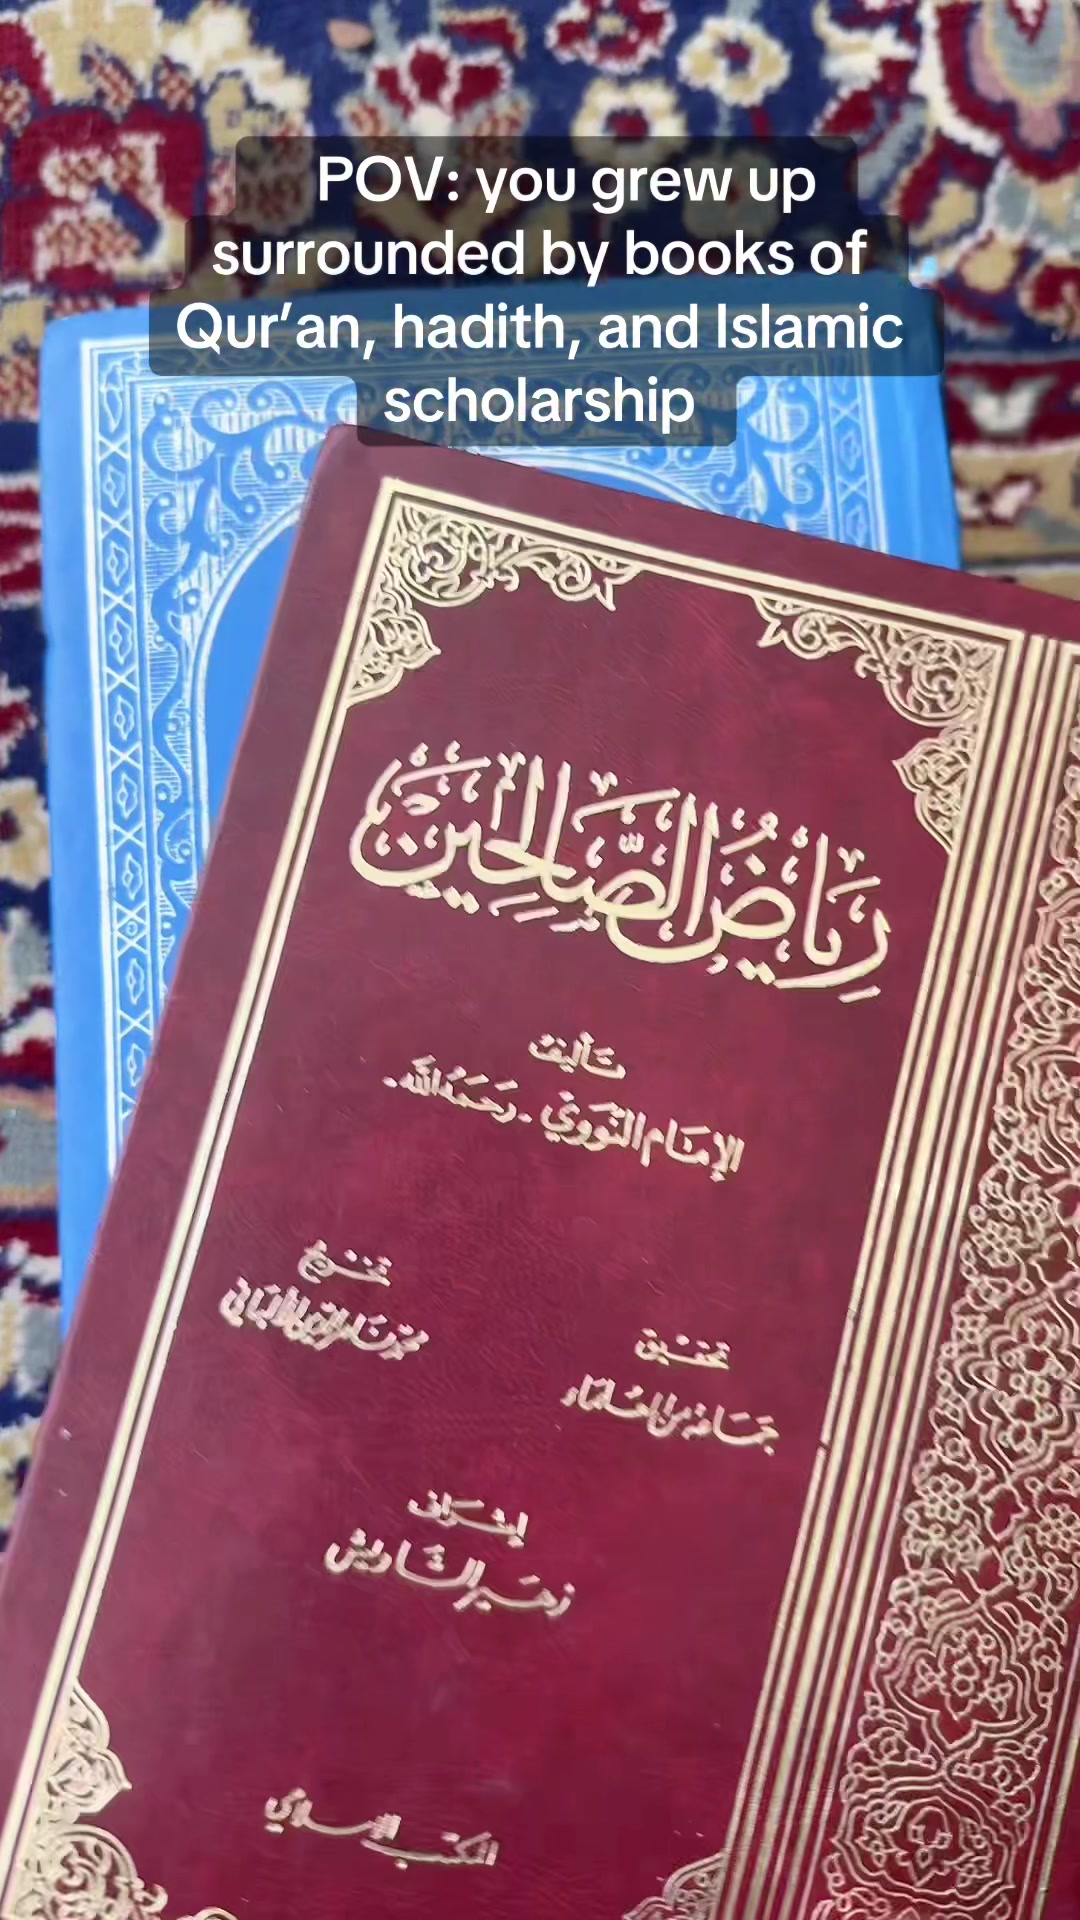 POV: you grew up
surrounded by books of
Qur’an, hadith, and Islamic
scholarship
رِيَاضُ الصَّالِحِينَ
تأليف
الإمَام النَّوَوي - رَحمَهُ الله -
تخريج
محمد ناصر الدين الألباني
تحقيق
جماعة من العلماء
إشراف
زهير الشاويش
المكتب الإسلامي